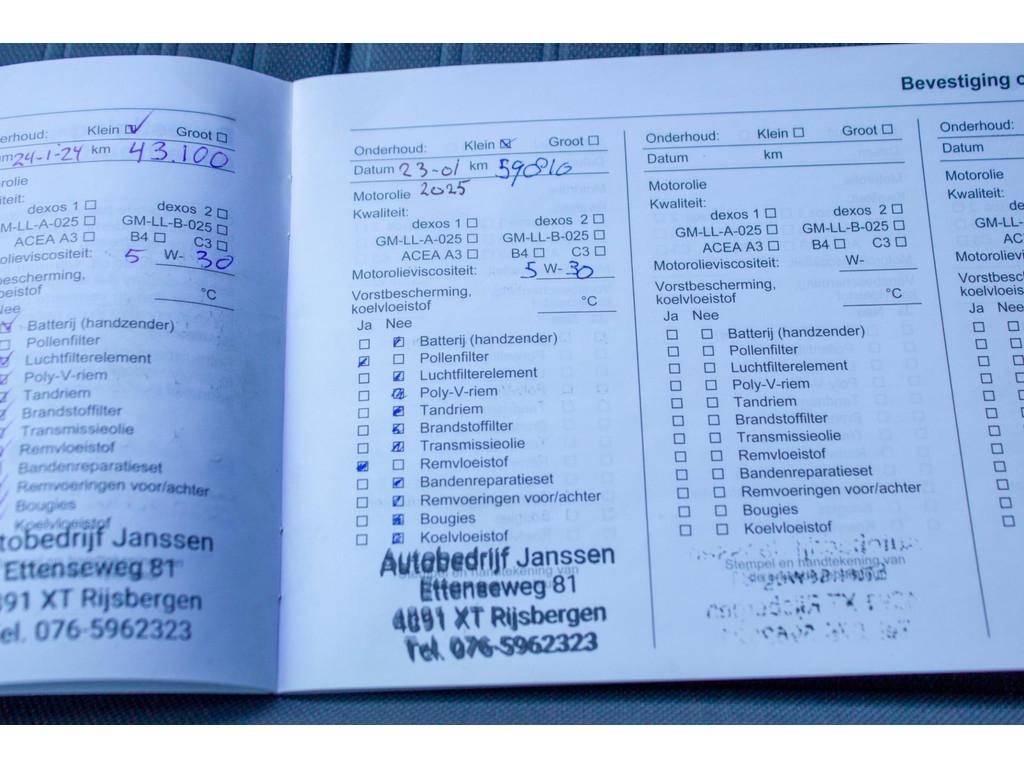 Bevestiging
erhoud: Klein Groot
m 24-1-24 km 43.100
orolie
iteit:
dexos 1 dexos 2
M-LL-A-025 GM-LL-B-025
ACEA A3 B4 C3
olieviscositeit: 5 W- 30
bescherming,
eistof °C
Nee
Batterij (handzender)
Pollenfilter
Luchtfilterelement
Poly-V-riem
Tandriem
Brandstoffilter
Transmissieolie
Remvloeistof
Bandenreparatieset
Remvoeringen voor/achter
Bougies
Koelvloeistof
tobedrijf Janssen
Ettenseweg 81
891 XT Rijsbergen
el. 076-5962323
Onderhoud: Klein Groot
Datum 23-01 km 59810
Motorolie 2025
Kwaliteit:
dexos 1 dexos 2
GM-LL-A-025 GM-LL-B-025
ACEA A3 B4 C3
Motorolieviscositeit: 5 W- 30
Vorstbescherming,
koelvloeistof °C
Ja Nee
Batterij (handzender)
Pollenfilter
Luchtfilterelement
Poly-V-riem
Tandriem
Brandstoffilter
Transmissieolie
Remvloeistof
Bandenreparatieset
Remvoeringen voor/achter
Bougies
Koelvloeistof
Autobedrijf Janssen
Stempel en handtekening van
Ettenseweg 81
4891 XT Rijsbergen
Tel. 076-5962323
Onderhoud: Klein Groot
Datum km
Motorolie
Kwaliteit:
dexos 1 dexos 2
GM-LL-A-025 GM-LL-B-025
ACEA A3 B4 C3
Motorolieviscositeit: W-
Vorstbescherming,
koelvloeistof °C
Ja Nee
Batterij (handzender)
Pollenfilter
Luchtfilterelement
Poly-V-riem
Tandriem
Brandstoffilter
Transmissieolie
Remvloeistof
Bandenreparatieset
Remvoeringen voor/achter
Bougies
Koelvloeistof
Stempel en handtekening van
Onderhoud:
Datum
Motorolie
Kwaliteit:
de
GM-LL-A
AC
Motorolievi
Vorstbesc
koelvloeis
Ja Nee